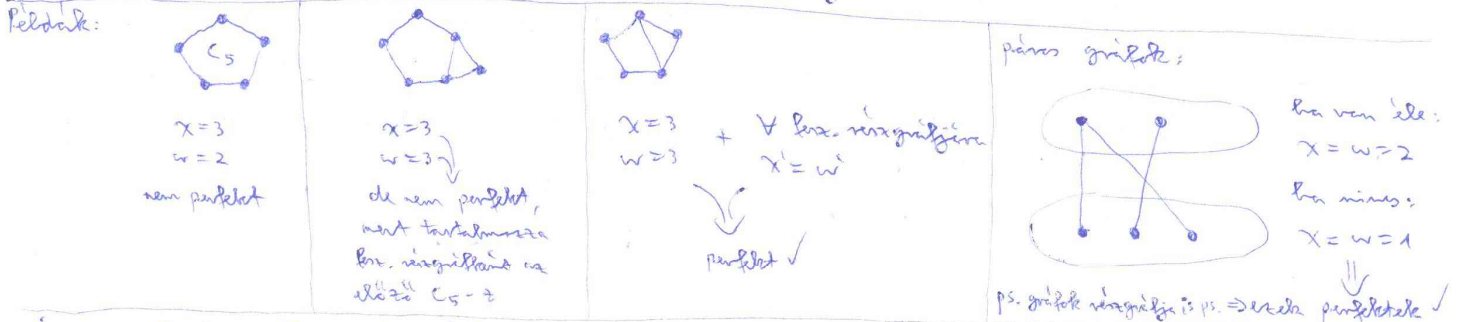 Példák:
C₅
χ=3
ω=2
nem perfekt
χ=3
ω=3
de nem perfekt,
mert tartalmazza
fesz. részgráfként az
előző C₅-t
χ=3
ω=3
+ ∀ fesz. részgráfjára
χ'=ω'
perfekt ✓
páros gráfok:
ha van éle:
χ=ω=2
ha nincs:
χ=ω=1
⇓
ps. gráfok részgráfja is ps. ⇒ ezek perfektek ✓